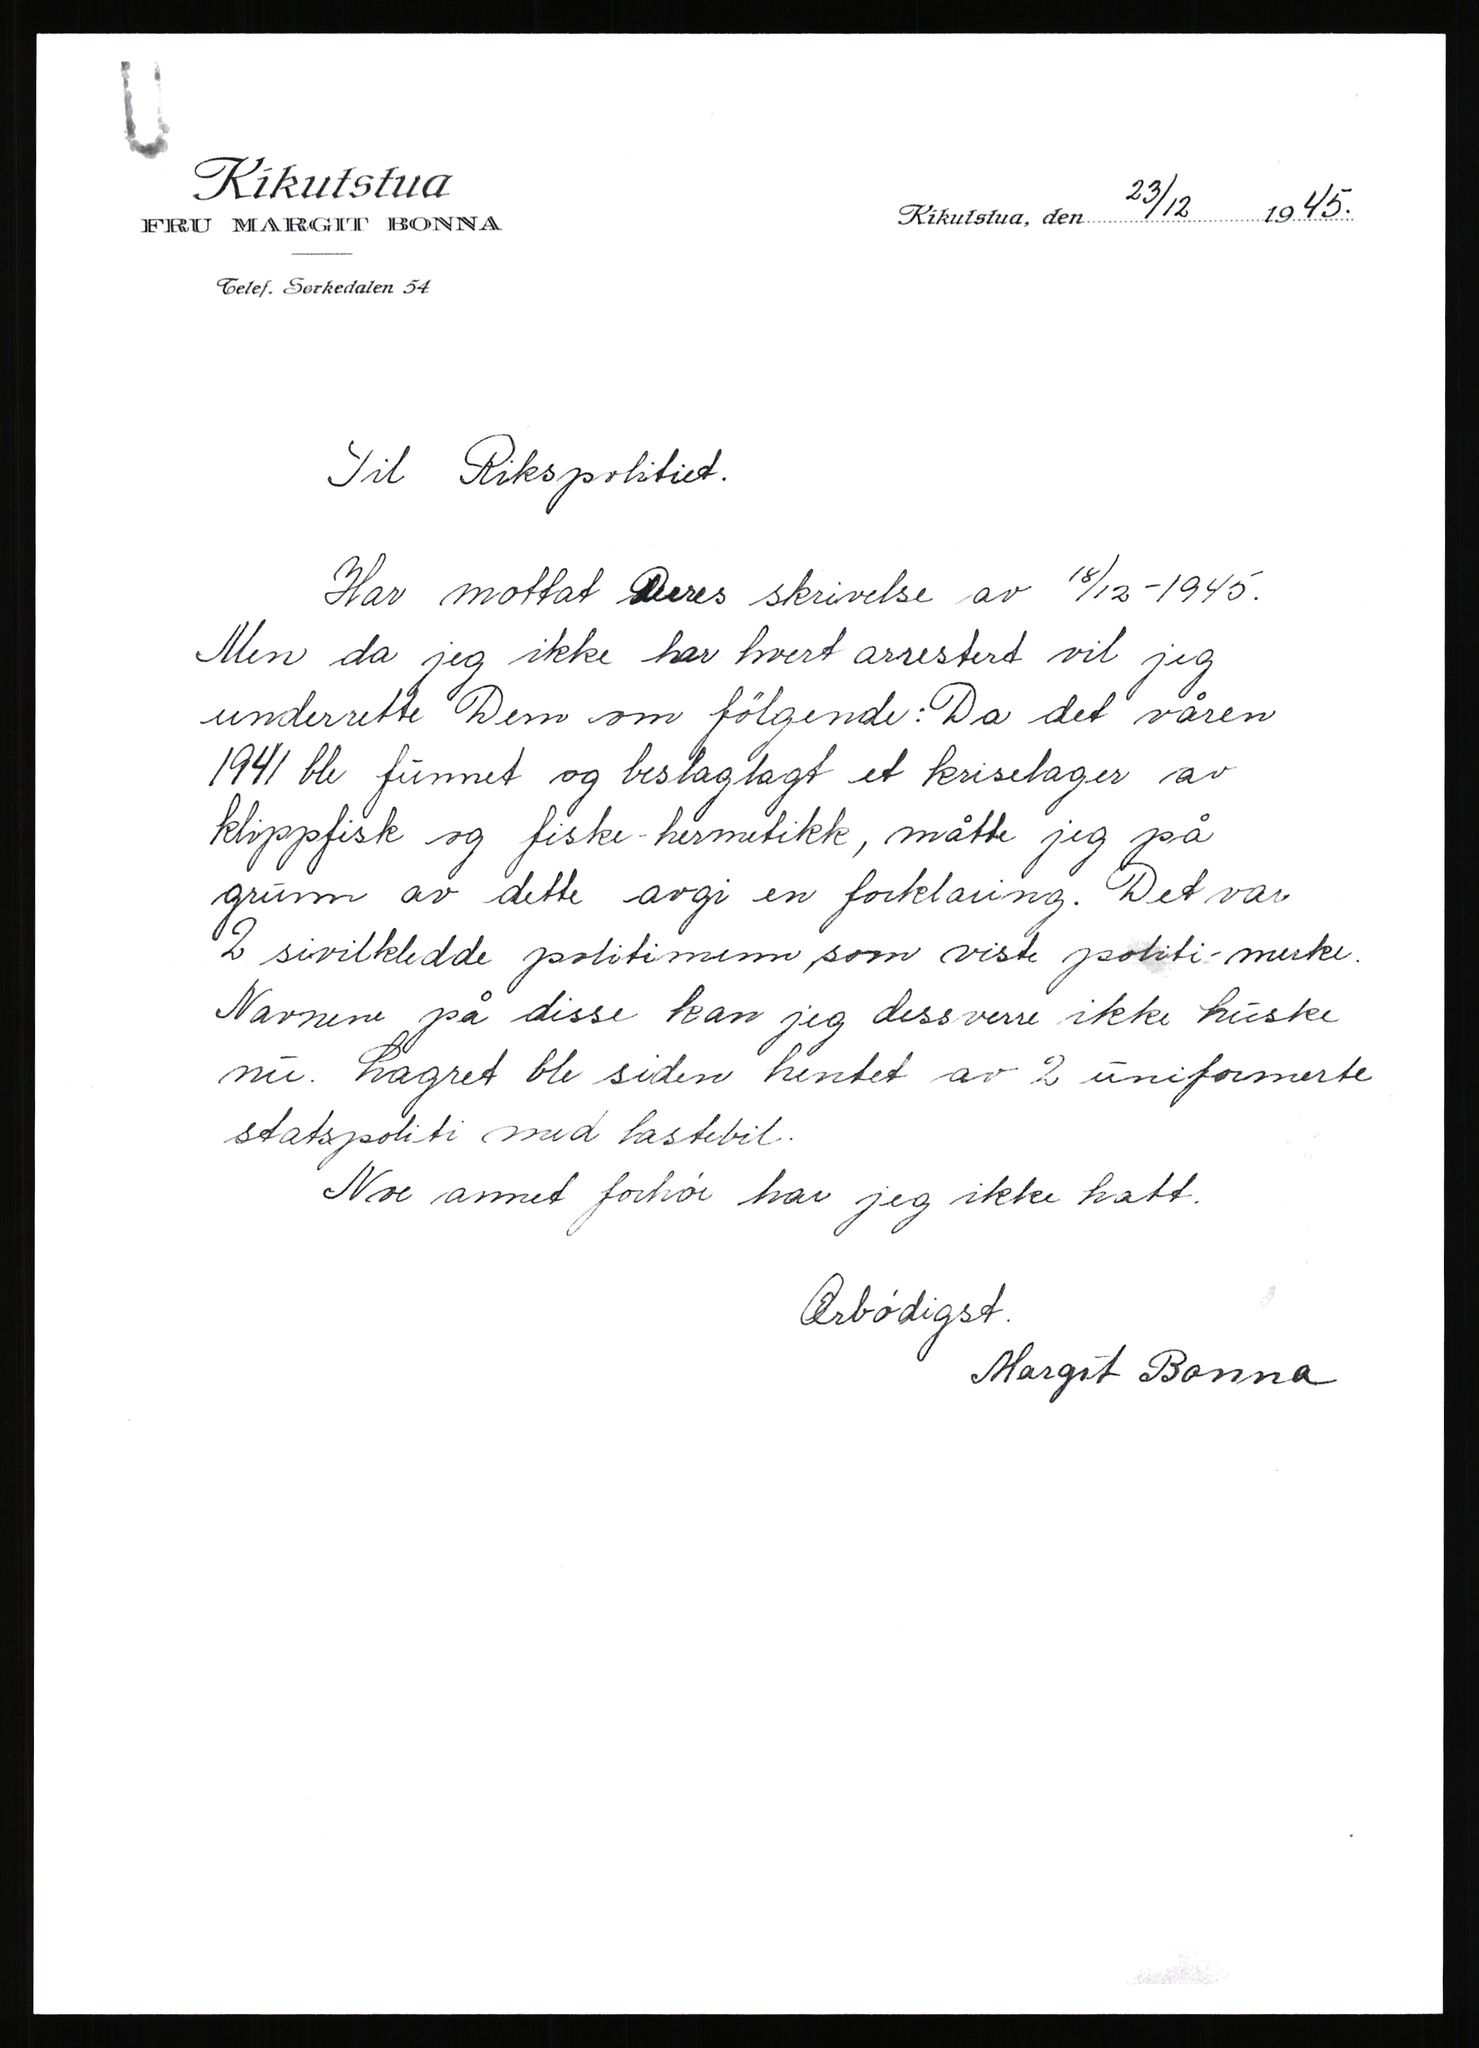 Kikutstua
FRU MARGIT BONNA
Telef. Sørkedalen 54
Kikutstua, den 23/12 1945.
Til Rikspolitiet.
Har mottat Deres skrivelse av 18/12-1945.
Men da jeg ikke har hvert arrestert vil jeg
underrette Dem om følgende: Da det våren
1941 ble funnet og beslaglagt et kriselager av
klippfisk og fiske-hermetikk, måtte jeg på
grunn av dette avgi en forklaring. Det var
2 sivilkledde politimenn, som viste politi-merke.
Navnene på disse kan jeg dessverre ikke huske
nu. Lagret ble siden hentet av 2 uniformerte
statspoliti med lastebil.
Noe annet forhör har jeg ikke hatt.
Ærbödigst.
Margit Bonna